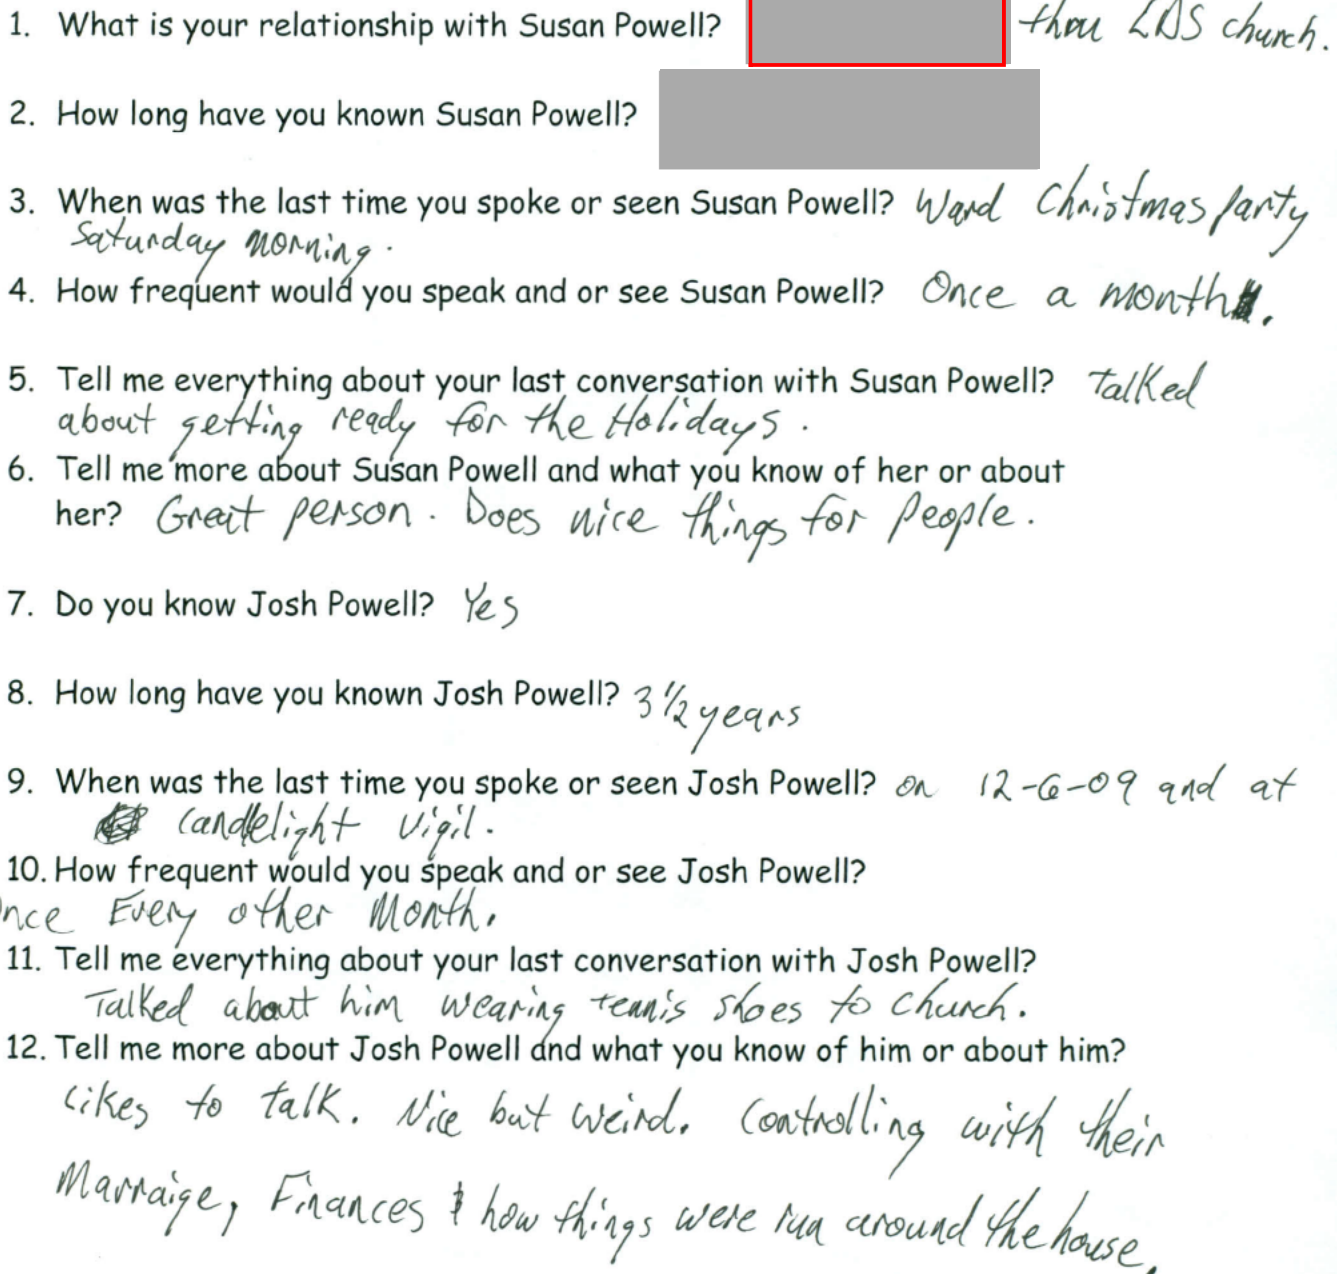 1. What is your relationship with Susan Powell? thru LDS church.
2. How long have you known Susan Powell?
3. When was the last time you spoke or seen Susan Powell? Ward Christmas party
Saturday morning.
4. How frequent would you speak and or see Susan Powell? Once a month.
5. Tell me everything about your last conversation with Susan Powell? Talked
about getting ready for the Holidays.
6. Tell me more about Susan Powell and what you know of her or about
her? Great person. Does nice things for people.
7. Do you know Josh Powell? Yes
8. How long have you known Josh Powell? 3 1/2 years
9. When was the last time you spoke or seen Josh Powell? on 12-6-09 and at
candlelight vigil.
10. How frequent would you speak and or see Josh Powell?
nce Every other Month.
11. Tell me everything about your last conversation with Josh Powell?
Talked about him wearing tennis shoes to church.
12. Tell me more about Josh Powell and what you know of him or about him?
Likes to talk. Nice but weird. Controlling with their
Marraige, Finances & how things were run around the house.